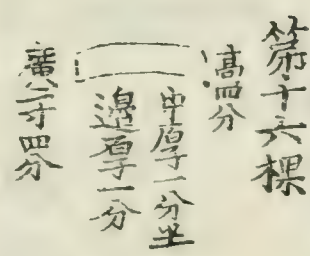 第十六棵
高四分
中厚一分半
邉厚一分
廣二寸四分